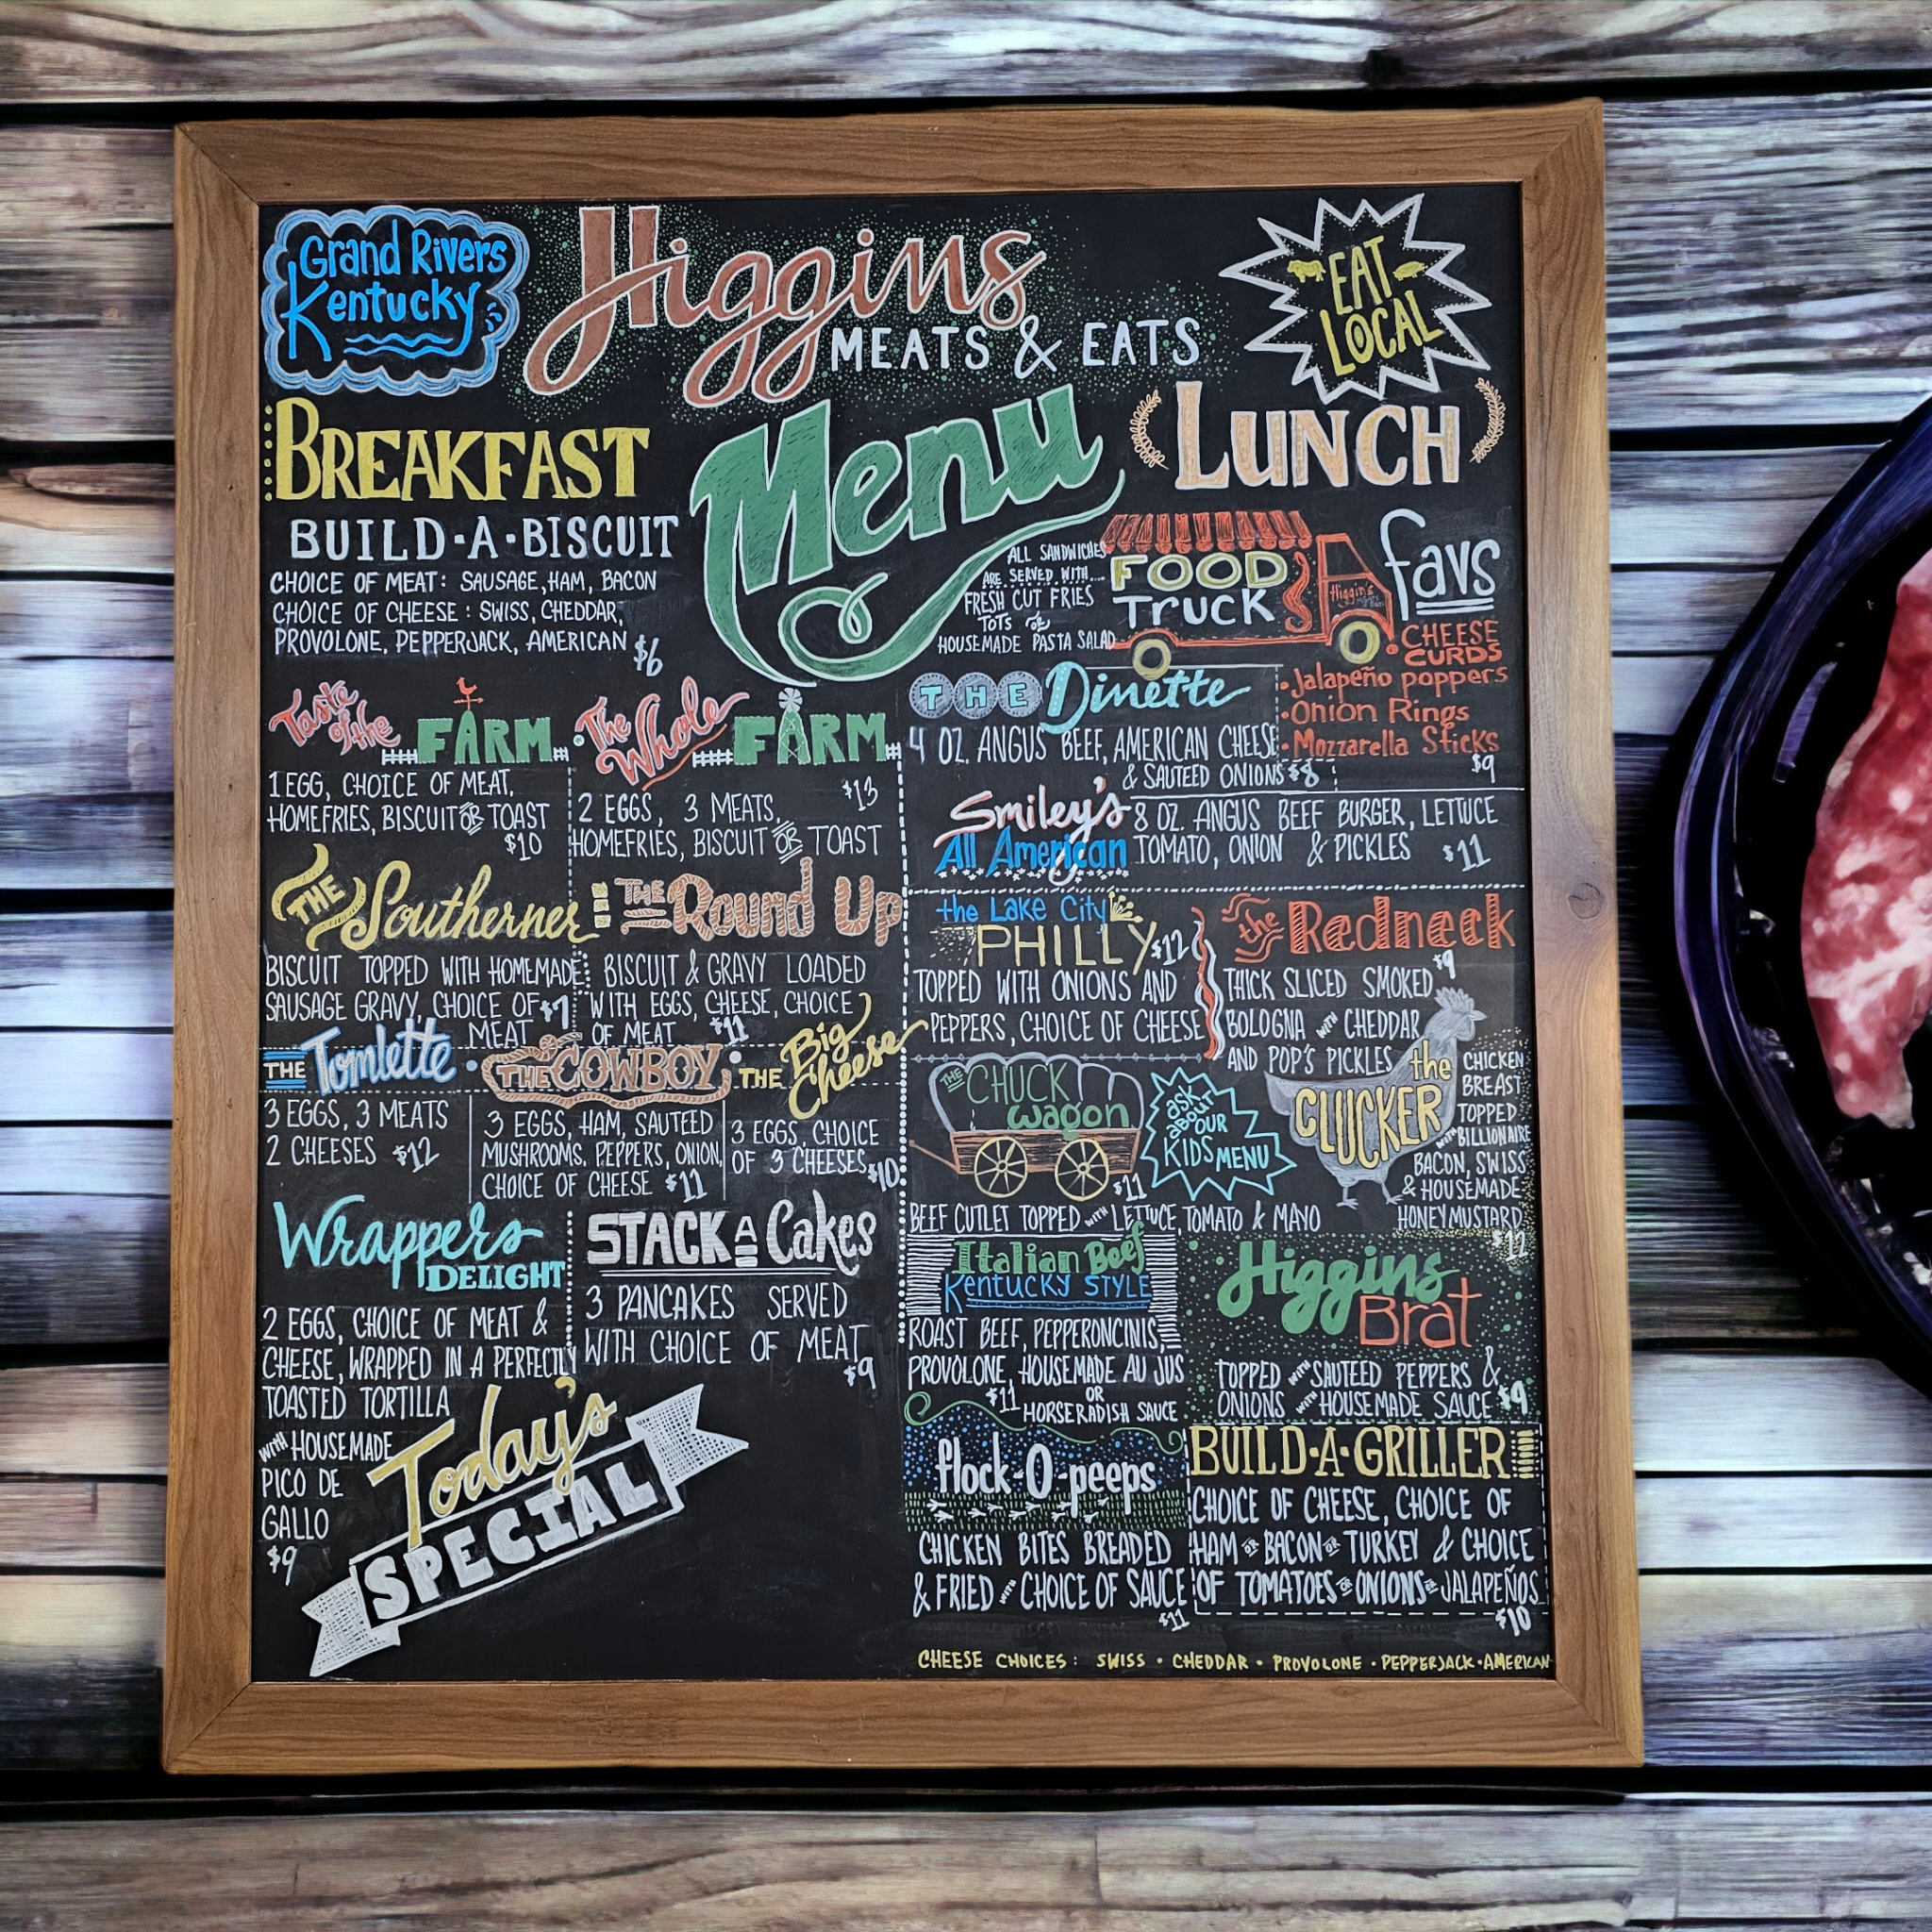 Grand Rivers
Kentucky
Higgins
MEATS & EATS
EAT
LOCAL
Menu
BREAKFAST
BUILD·A·BISCUIT
CHOICE OF MEAT: SAUSAGE, HAM, BACON
CHOICE OF CHEESE: SWISS, CHEDDAR,
PROVOLONE, PEPPERJACK, AMERICAN
$6
Taste of the FARM
1 EGG, CHOICE OF MEAT,
HOMEFRIES, BISCUIT OR TOAST
$10
The Whole FARM
$13
2 EGGS, 3 MEATS,
HOMEFRIES, BISCUIT OR TOAST
THE Southerner
BISCUIT TOPPED WITH HOMEMADE
SAUSAGE GRAVY, CHOICE OF $7
MEAT
THE Round Up
BISCUIT & GRAVY LOADED
WITH EGGS, CHEESE, CHOICE
OF MEAT $11
THE Tomlette
3 EGGS, 3 MEATS
2 CHEESES $12
THE COWBOY
3 EGGS, HAM, SAUTEED
MUSHROOMS. PEPPERS, ONION,
CHOICE OF CHEESE $11
THE Big Cheese
3 EGGS, CHOICE
OF 3 CHEESES $10
Wrappers
DELIGHT
2 EGGS, CHOICE OF MEAT &
CHEESE, WRAPPED IN A PERFECTLY
TOASTED TORTILLA
WITH HOUSEMADE
PICO DE
GALLO
$9
STACK A Cakes
3 PANCAKES SERVED
WITH CHOICE OF MEAT
$9
Today's
SPECIAL
LUNCH
ALL SANDWICHES
ARE SERVED WITH....
FRESH CUT FRIES
TOTS OR
HOUSEMADE PASTA SALAD
FOOD
TRUCK
Higgin's
favs
CHEESE
CURDS
Jalapeño poppers
Onion Rings
Mozzarella Sticks
$9
THE Dinette
4 OZ. ANGUS BEEF, AMERICAN CHEESE
& SAUTEED ONIONS $8
Smiley's
All American
8 OZ. ANGUS BEEF BURGER, LETTUCE
TOMATO, ONION & PICKLES $11
the Lake City
PHILLY $12
TOPPED WITH ONIONS AND
PEPPERS, CHOICE OF CHEESE
the Redneck
$9
THICK SLICED SMOKED
BOLOGNA WITH CHEDDAR
AND POP'S PICKLES
THE CHUCK
wagon
$11
BEEF CUTLET TOPPED WITH LETTUCE, TOMATO & MAYO
ASK
ABOUT
OUR
KIDS MENU
the
CLUCKER
CHICKEN
BREAST
TOPPED
WITH BILLIONAIRE
BACON, SWISS
& HOUSEMADE
HONEY MUSTARD
$12
Italian Beef
Kentucky STYLE
ROAST BEEF, PEPPERONCINIS,
PROVOLONE, HOUSEMADE AU JUS
$11 OR
HORSERADISH SAUCE
Higgins
Brat
TOPPED WITH SAUTEED PEPPERS &
ONIONS WITH HOUSEMADE SAUCE $9
flock-O-peeps
CHICKEN BITES BREADED
& FRIED WITH CHOICE OF SAUCE
$11
BUILD·A·GRILLER
CHOICE OF CHEESE, CHOICE OF
HAM OR BACON OR TURKEY & CHOICE
OF TOMATOES OR ONIONS OR JALAPEÑOS
$10
CHEESE CHOICES: SWISS · CHEDDAR · PROVOLONE · PEPPERJACK · AMERICAN